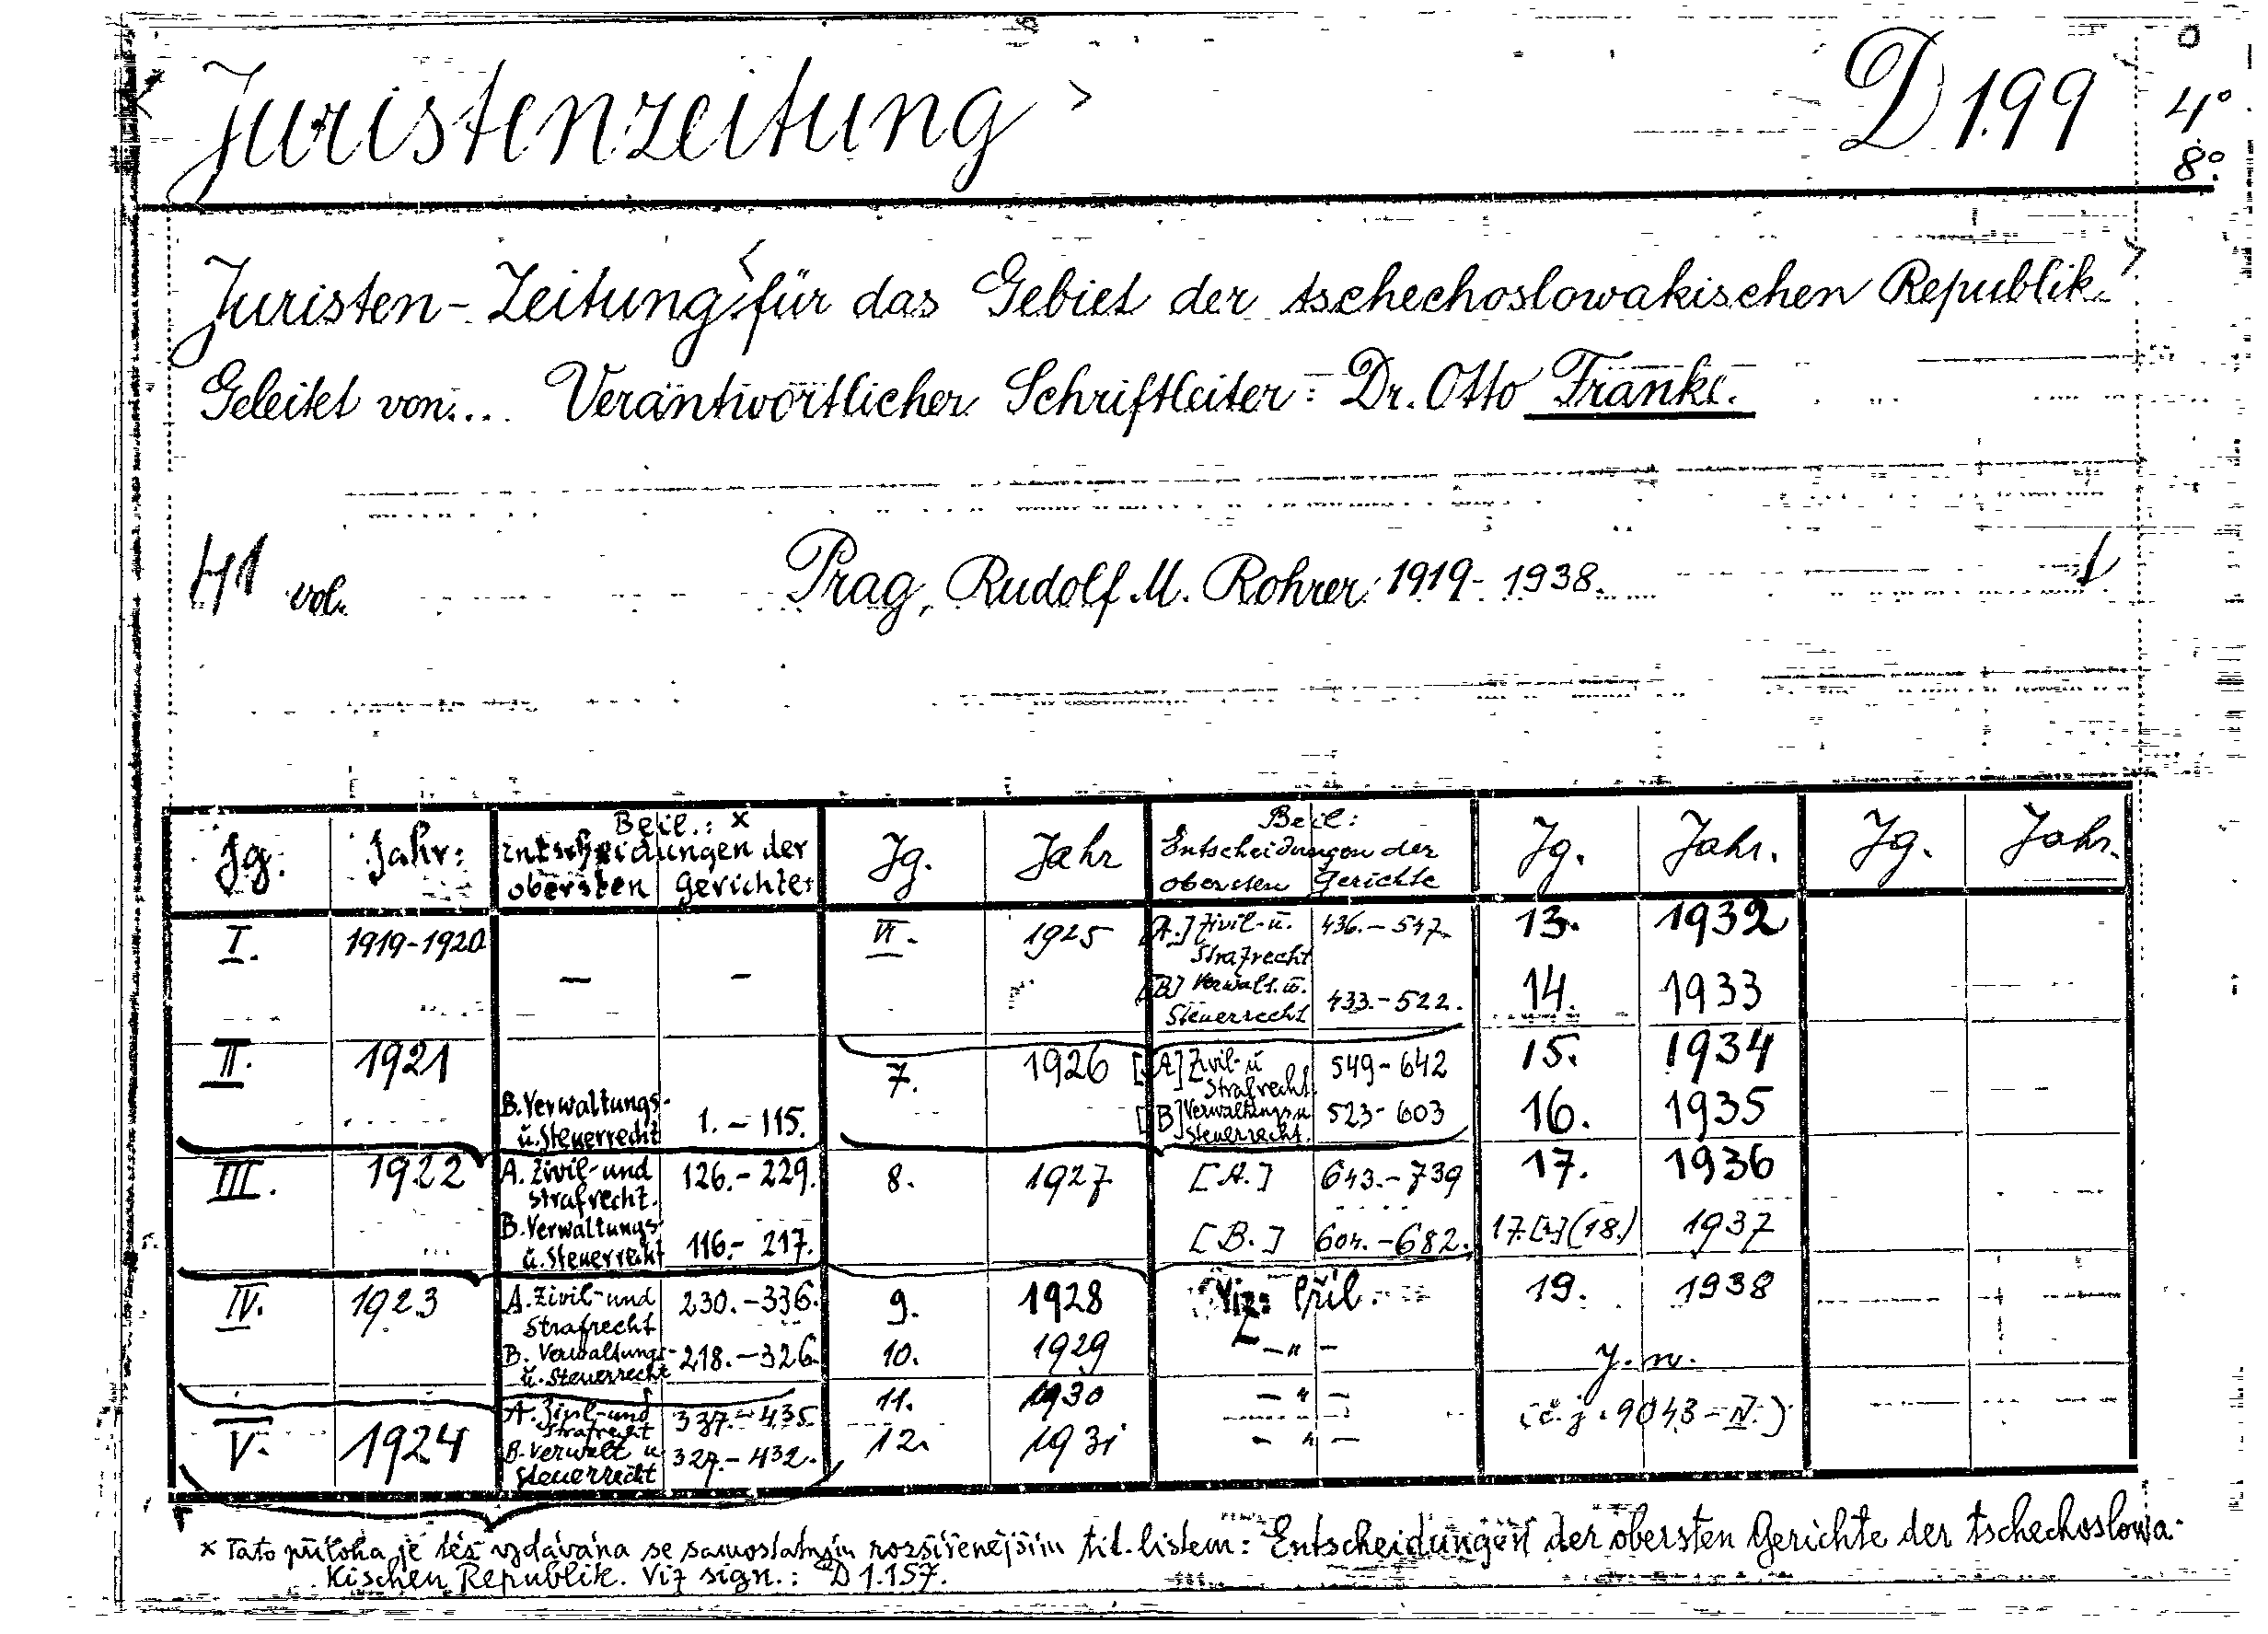 Juristenzeitung > D 1.99 4°
8°
Juristen-Zeitung < für das Gebiet der tschechoslowakischen Republik. >
Geleitet von.... Verantwortlicher Schriftleiter: Dr. Otto Frankl.
41 vol. Prag, Rudolf M. Rohrer 1919-1938.
Jg. Jahr: Beil.: x Entscheidungen der obersten Gerichte Jg. Jahr Beil: Entscheidungen der obersten Gerichte Jg. Jahr. Jg. Jahr.
I. 1919-1920 — — VI. 1925 [A.] Zivil-u. Strafrecht 436.-547. 13. 1932
[B] Verwalt. u. Steuerrecht 433.-522. 14. 1933
II. 1921 7. 1926 [A] Zivil-u Strafrecht. 549-642 15. 1934
B. Verwaltungs- u. Steuerrecht 1.-115. [B] Verwaltungs u Steuerrecht. 523-603 16. 1935
III. 1922 A. Zivil-und Strafrecht. 126.-229. 8. 1927 [A.] 643.-739 17. 1936
B. Verwaltungs- u. Steuerrecht 116.-217. [B.] 604.-682. 17. (18.) 1937
IV. 1923 A. Zivil-und Strafrecht 230.-336. 9. 1928 Viz: Příl. 19. 1938
B. Verwaltungs- u. Steuerrecht 218.-326. 10. 1929 -"-
11. 1930 -"-
V. 1924 A. Zivil-und Strafrecht 337.-435. (č.j. 9043-IV.)
B. Verwalt u. Steuerrecht 327.-432. 12. 1931 -"-
x Tato příloha je též vydávána se samostatným rozšířenějším tit. listem: Entscheidungen der obersten Gerichte der tschechoslowa-
kischen Republik. Viz sign.: D 1.157.